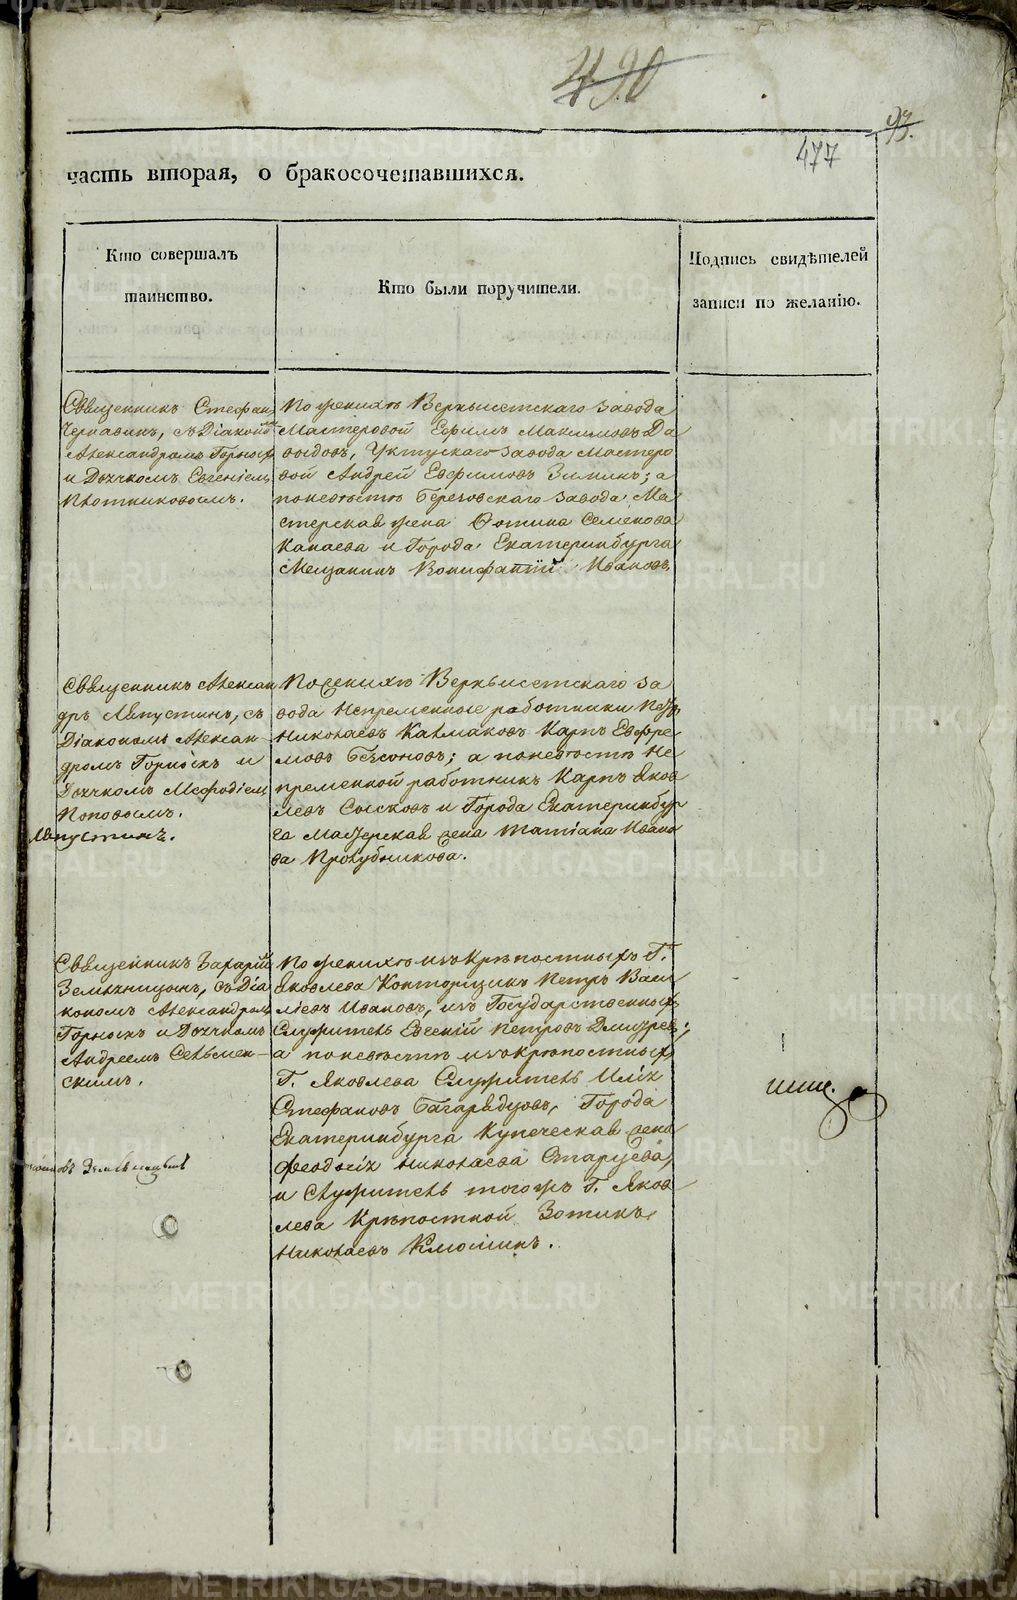 490
93.
477
часть вторая, о бракосочетавшихся.
Кто совершалъ
таинство.
Кто были поручители.
Подпись свидѣтелей
записи по желанію.
Священникъ Стефан
Чернавинъ, съ Діакономъ
Александромъ Горныхъ
и Дьячкомъ Евгеніемъ
Плотниковымъ.
По женихѣ Верхъисетскаго завода
Мастеровой Ефимъ Максимовъ Да
выдовъ, Уктускаго завода Мастеро
вой Андрей Евфимовъ Зиминъ; а
по невѣстѣ Березовскаго завода Ма
стерская жена Фотина Семенова
Канаева и Города Екатеринбурга
Мещанинъ Вонифатій Ивановъ.
Священникъ Алексан
дръ Ляпустинъ, съ
Діакономъ Алексан-
дромъ Горныхъ и
Дьячкомъ Мефодіемъ
Поповымъ.
Ляпустинъ.
По женихѣ Верхъисетскаго за
вода Непременные работники Петръ
Николаевъ Калмаковъ Карпъ Евфре
мовъ Безсоновъ; а по невѣстѣ Не
пременной работникъ Карпъ Яков
левъ Сысковъ и Города Екатеринбур
га Мастерская жена Татіана Ивано
ва Пролубникова.
Священникъ Захарій
Земляницынъ, съ Діа
кономъ Александромъ
Горныхъ и Дьячкомъ
Андреемъ Сельмен-
скимъ.
Земляницынъ
По женихѣ изъ крѣпостныхъ Г.
Яковлева Конторщикъ Петръ Васи
ліевъ Ивановъ, изъ Государственныхъ
Служитель Евгеній Петровъ Дмитревъ;
а по невѣстѣ изъ крѣпостныхъ
Г. Яковлева Служитель Илія
Стефановъ Багарядцовъ, Города
Екатеринбурга Купеческая жена
Феодосія Николаева Старцева,
и Служитель того жъ Г. Яков
лева Крѣпостной Зотикъ
Николаевъ Клюшинъ.
METRIKI.GASO-URAL.RU